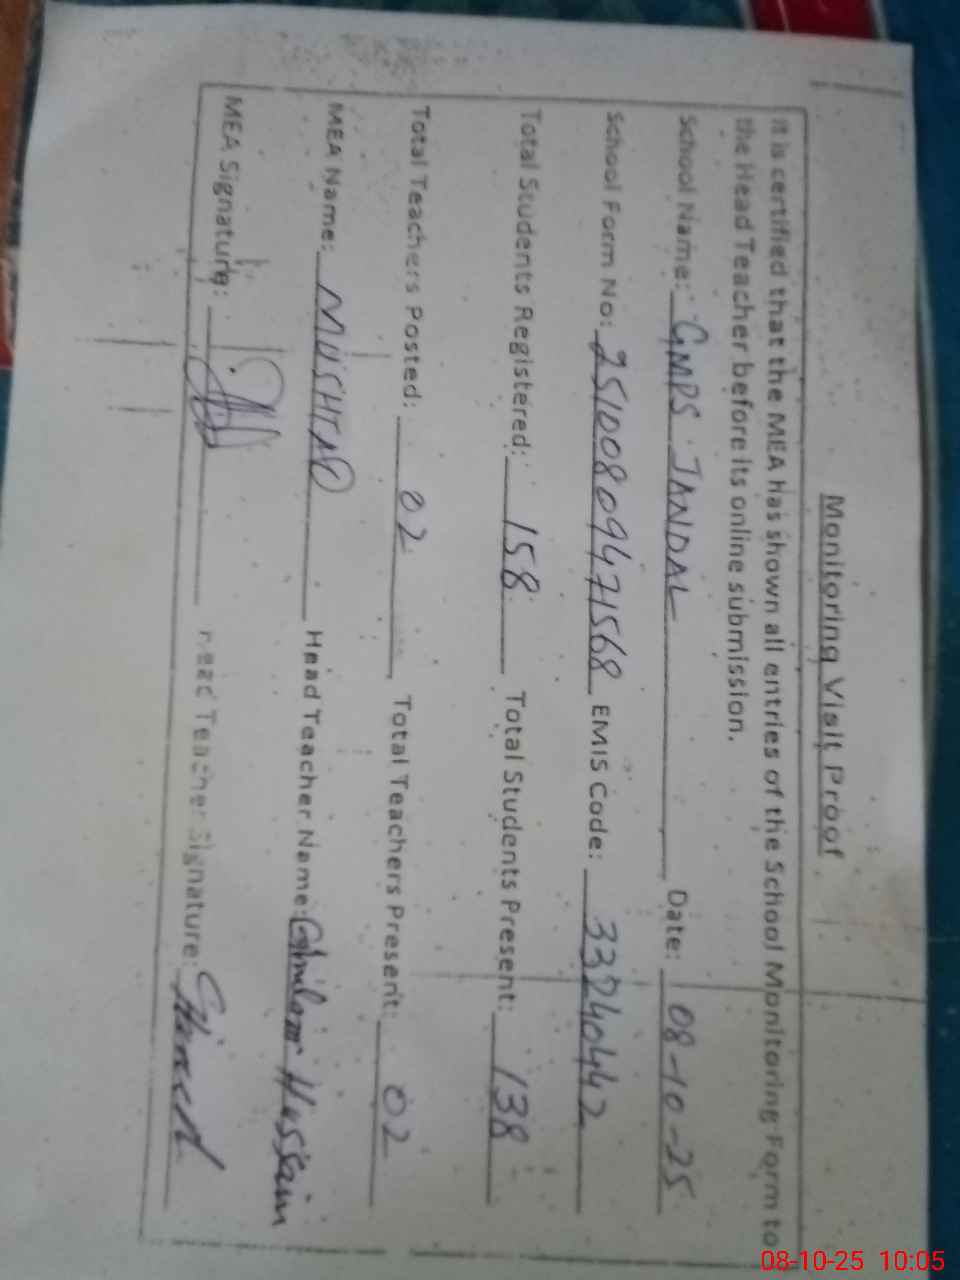 Monitoring Visit Proof
It is certified that the MEA has shown all entries of the School Monitoring Form to
the Head Teacher before its online submission.
School Name: GMPS JANDAL Date: 08-10-25
School Form No: 25100809471568 EMIS Code: 33240442
Total Students Registered: 158 Total Students Present: 138
Total Teachers Posted: 02 Total Teachers Present: 02
MEA Name: MUSHTAQ Head Teacher Name: Ghulam Hussain
MEA Signature: Head Teacher Signature:
08-10-25 10:05